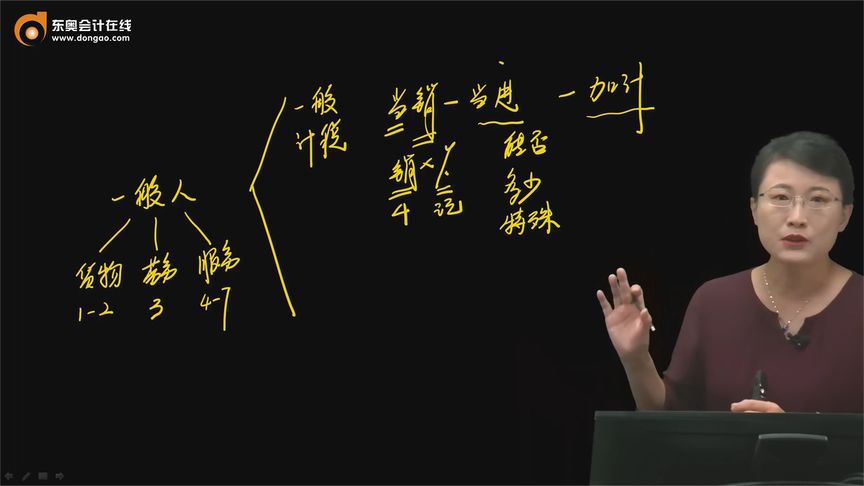 东奥会计在线
www.dongao.com
一般计税
当销 - 当进 - 加计
销 × %
4 记
能否
多少
特殊
一般人
货物 劳务 服务
1-2 3 4-7